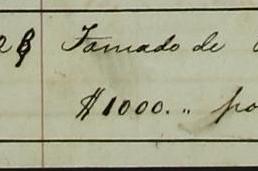 Tomado de
$1000.„ po